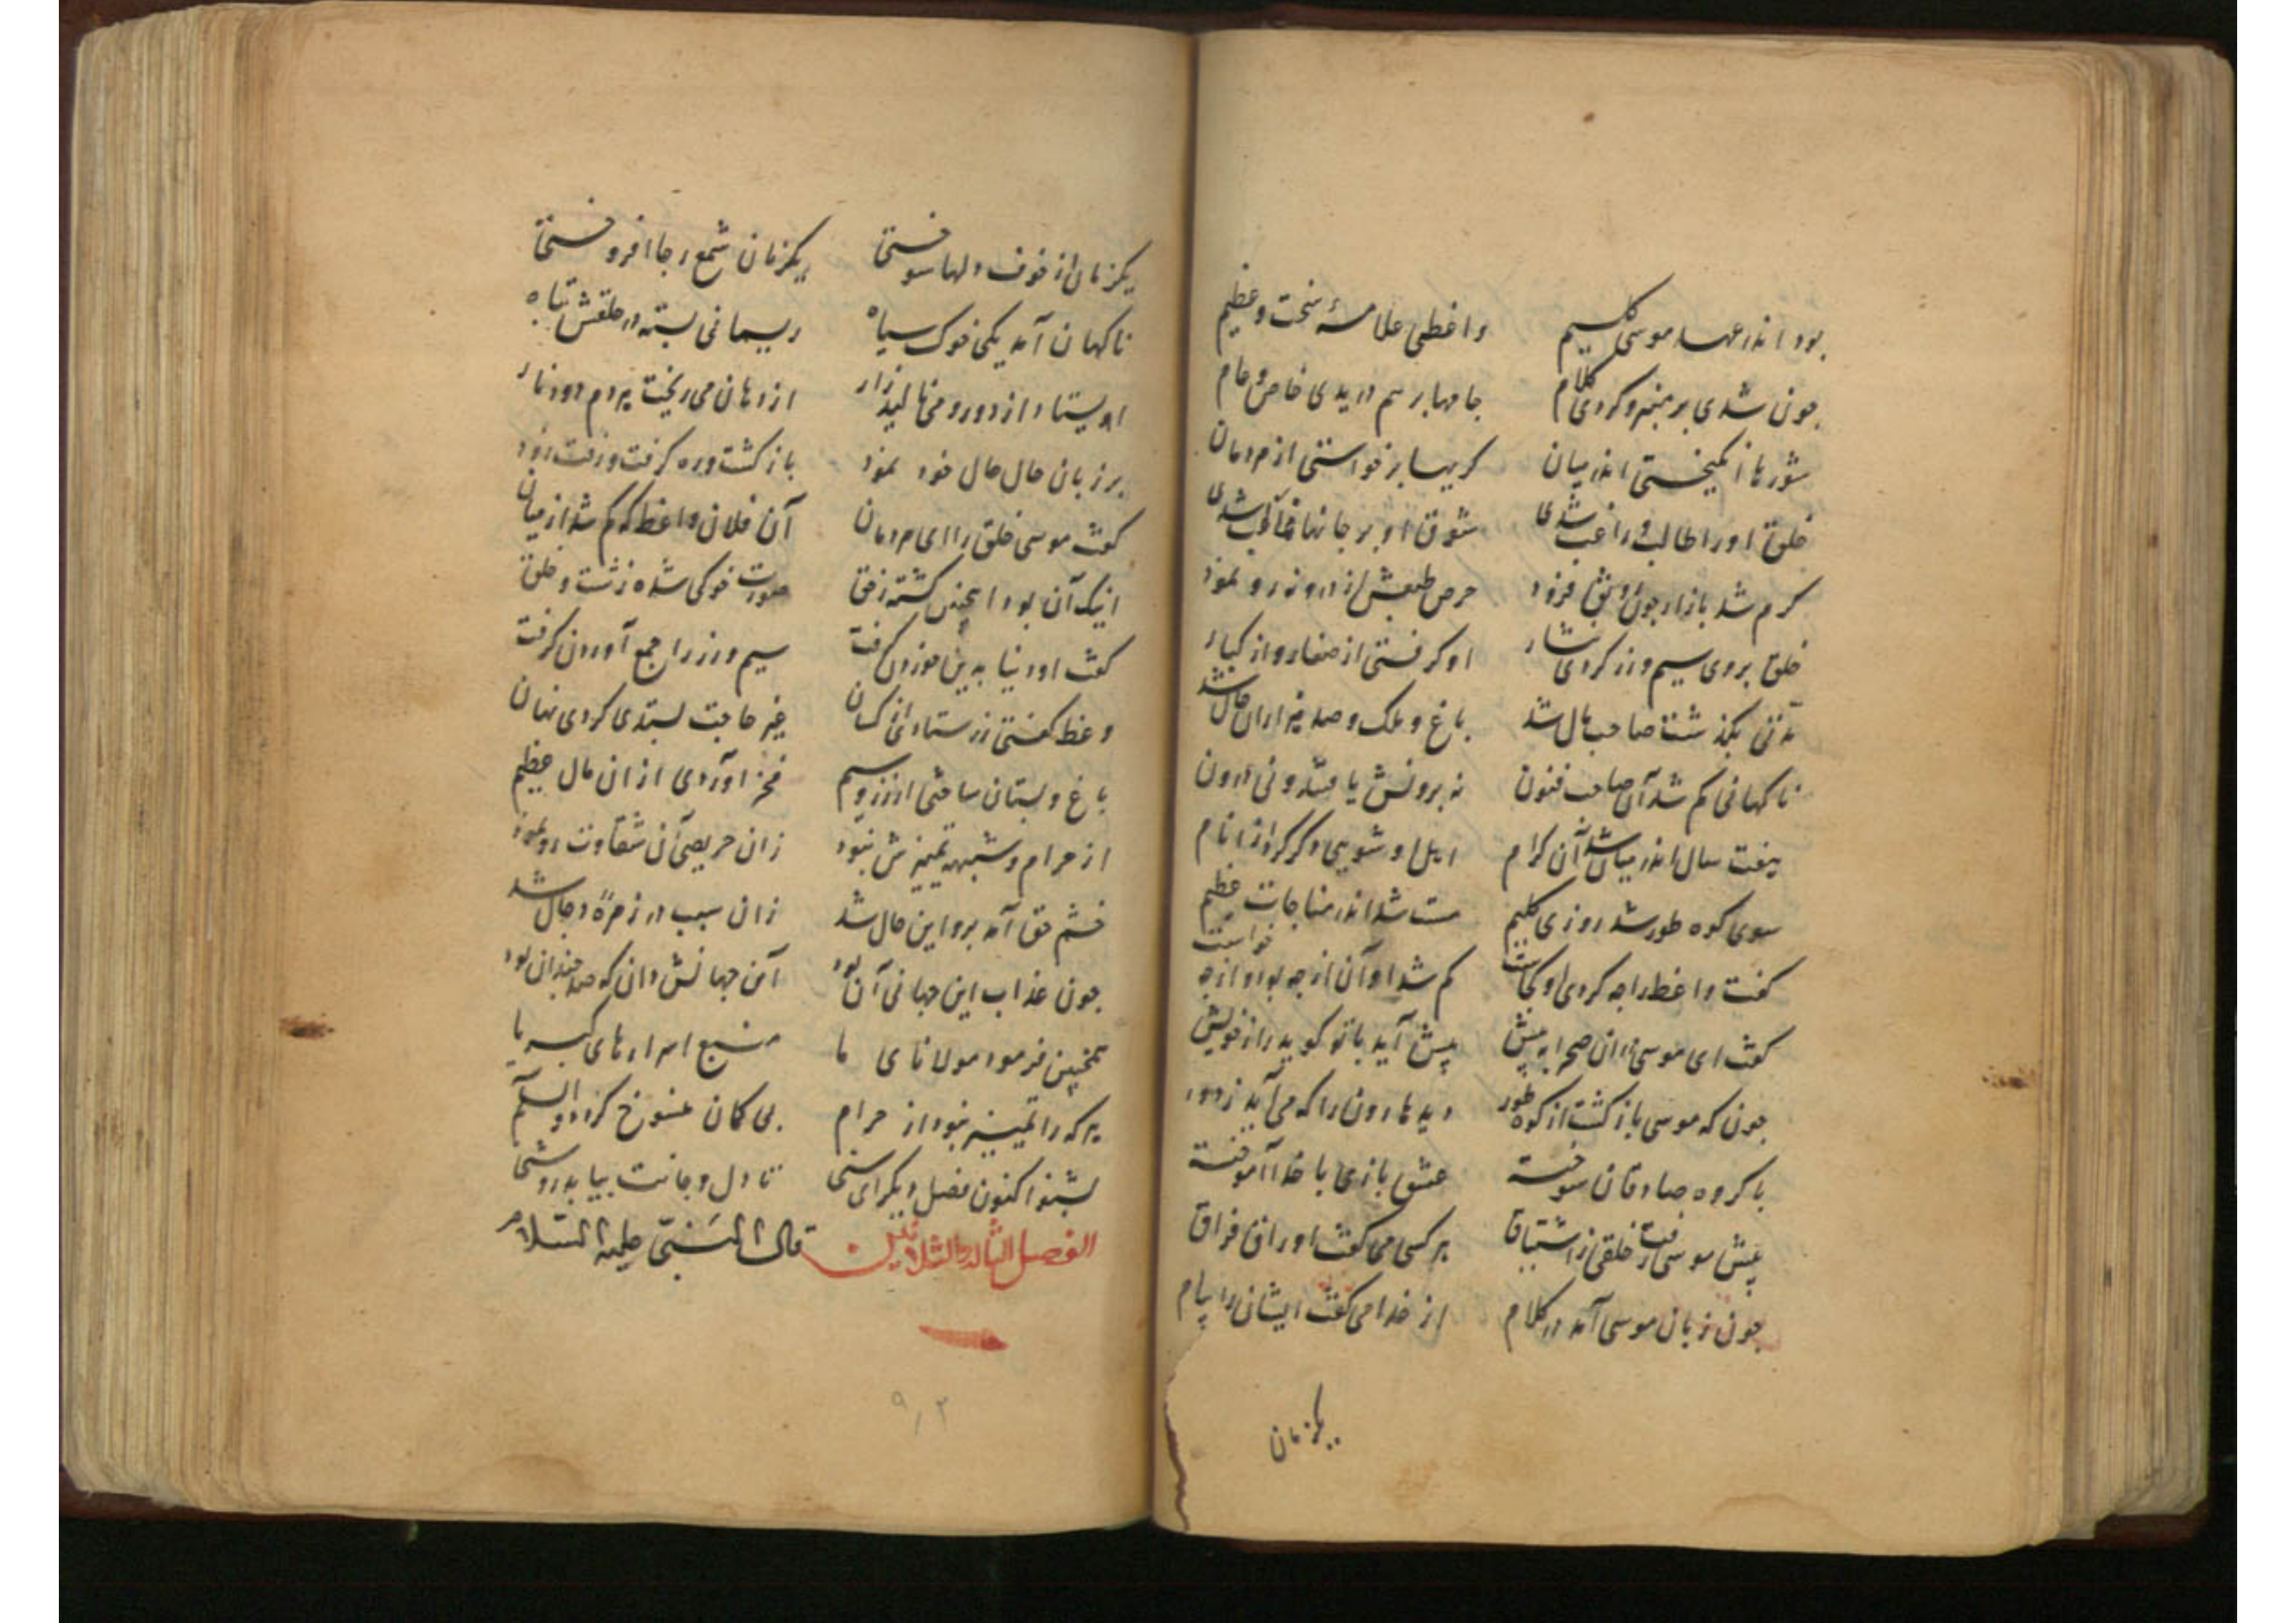 بود اندر عهد موسی کلیم واعظی علامهٔ سخت و عظیم
چون شدی بر منبر و کردی کلام جامها بر هم دریدی خاص و عام
شورها انکیختی اندر میان کریها برخواستی از مردمان
خلق او را طالب و راغب شدی شوق او بر جانها غالب شدی
کرم شد بازار چون رونق فزود حرص طبعش از درون رو نمود
خلق بر وی سیم و زر کردی نثار او کرفتی از صغار و از کبار
مدتی بکذشت صاحب مال شد باغ و ملک و صد هزاران حال شد
ناکهانی کم شد آن صاحب فنون نه برونش یافتند و نی درون
هفت سال اندر میان شد آن کرام اهل او شوی دکر کرد از انام
سوی کوه طور شد روزی کلیم مست شد اندر مناجات عظیم
کفت واعظ را چه کردی او کجاست کم شد او آن از چه بود و از چه خواست
کفت ای موسی دران صحرا به پیش پیش آید با تو کوید راز خویش
چون که موسی بازکشت از کوه طور دید هارون را که می آید ز دور
با کروه صادقان سوخته عشق بازی با خدا آموخته
پیش موسی رفت خلقی ز اشتیاق هر کسی می کفت اوراق فراق
چون زبان موسی آمد در کلام از خدا می کفت ایشان را پیام
یکزمان
یکزمان از خوف دلها سوختی یکزمان شمع رجا افروختی
ناکهان آمد یکی خوک سیاه ریسمانی بسته در حلقش تباه
ایستاد از دور و می نالید زار از دهان می ریخت هر دم دود نار
بر زبان حال حال خود نمود بازکشت و ره کرفت و رفت زود
کفت موسی خلق را ای مردمان آن فلان واعظ که کم شد از میان
اینک آن بود اینچنین کشته ز حق صورت خوکی شده زشت و خلق
کفت او دنیا به دین خوردن کرفت سیم و زر را جمع آوردن کرفت
وعظ کفتی زر ستادی از کسان غیر حاجت بستدی کردی نهان
باغ و بستان ساختی از زر و سیم فخر آوردی از ان مال عظیم
از حرام و شبهه تمییزش نبود زان حریصی آن شقاوت رو نمود
خشم حق آمد برو این حال شد زان سبب در زمرهٔ دجال شد
چون عذاب این جهانی آن بود آن جهانش دان که صد چندان بود
همچنین فرمود مولانای ما منبع اسرارهای کبریا
هر که را تمییز نبود از حرام بی کمان منسوخ کردد والسلام
بشنو اکنون فصل دیکر ای سخی تا دل و جانت بیابد روشنی
الفصل الثالث والثلاثین قال النبی علیه السلام
۹۳